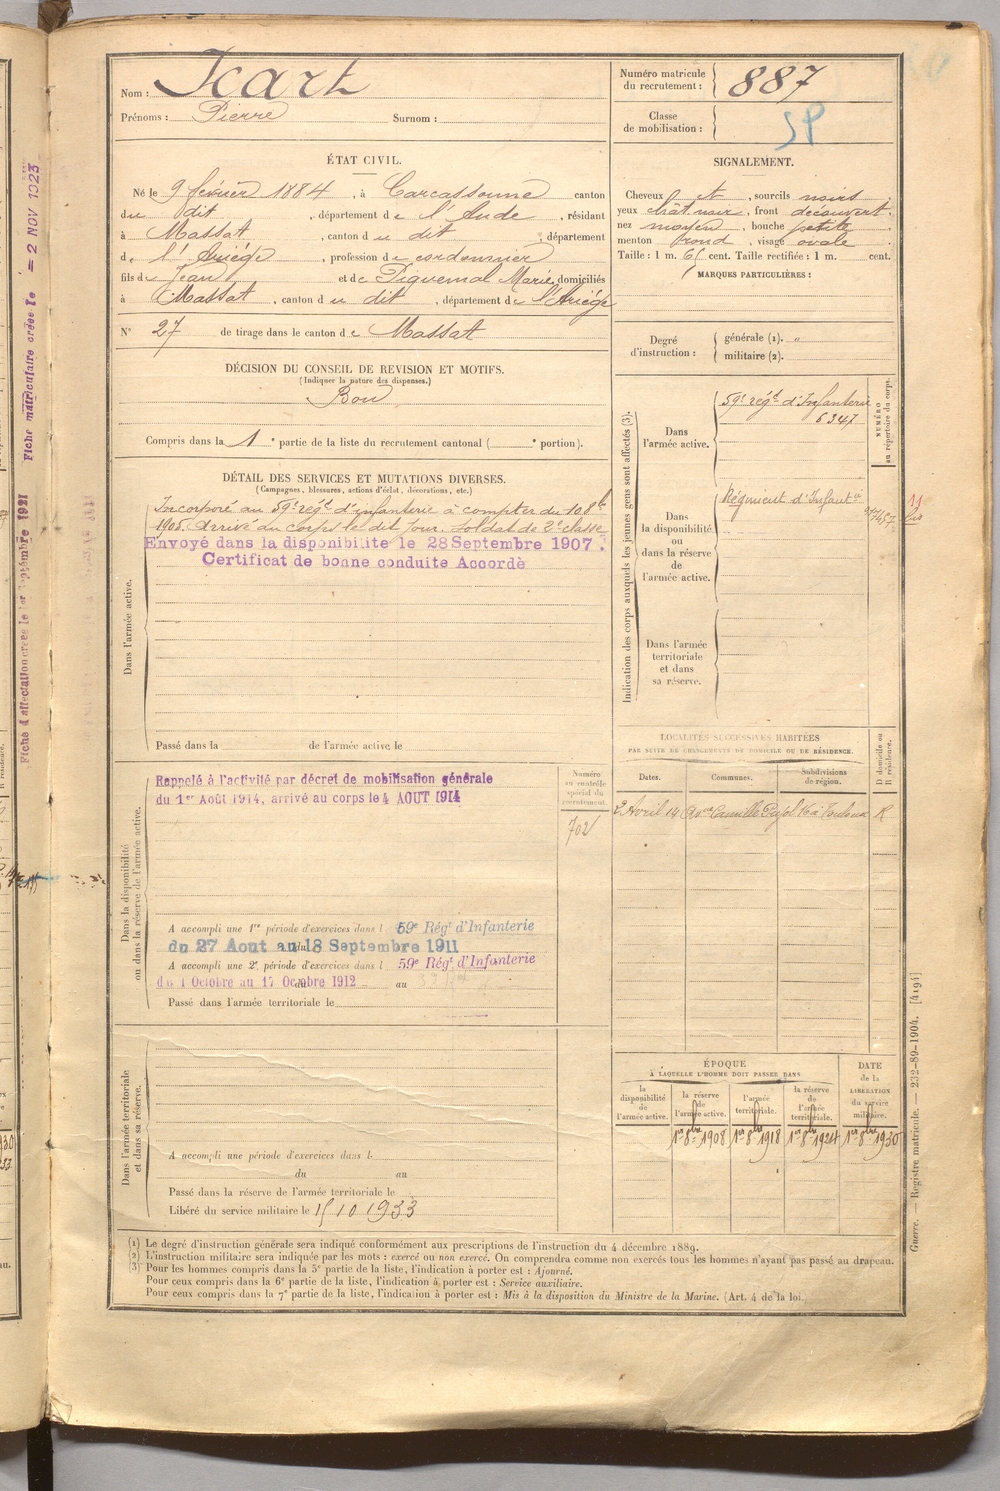 Nom : Icart
Prénoms : Pierre Surnom :
Numéro matricule du recrutement : 887
Classe de mobilisation : SP
ÉTAT CIVIL.
Né le 9 février 1884, à Carcassonne canton
du dit, département de l'Aude, résidant
à Massat, canton du dit, département
de l'Ariége, profession de cordonnier
fils de Jean et de Piquemal Marie domiciliés
à Massat, canton du dit, département de l'Ariége
N° 27 de tirage dans le canton de Massat
SIGNALEMENT.
Cheveux et, sourcils noirs
yeux chât. noir, front découvert.
nez moyen, bouche petite
menton rond, visage ovale
Taille : 1 m. 65 cent. Taille rectifiée : 1 m. cent.
MARQUES PARTICULIÈRES :
Degré d'instruction : générale (1). "
militaire (2).
DÉCISION DU CONSEIL DE REVISION ET MOTIFS.
(Indiquer la nature des dispenses.)
Bon
Compris dans la 1e partie de la liste du recrutement cantonal ( e portion).
DÉTAIL DES SERVICES ET MUTATIONS DIVERSES.
(Campagnes, blessures, actions d'éclat, décorations, etc.)
Dans l'armée active.
Incorporé au 59e régt d'infanterie à compter du 10 8bre
1905. Arrivé au corps le dit jour. Soldat de 2e classe
Envoyé dans la disponibilité le 28 Septembre 1907.
Certificat de bonne conduite Accordé
Passé dans la de l'armée active le
Indication des corps auxquels les jeunes gens sont affectés (3).
NUMÉRO au répertoire du corps.
Dans l'armée active.
59e régt d'Infanterie
6347
Dans la disponibilité ou dans la réserve de l'armée active.
Régiment d'Infantie
Dans l'armée territoriale et dans sa réserve.
LOCALITÉS SUCCESSIVES HABITÉES
PAR SUITE DE CHANGEMENTS DE DOMICILE OU DE RÉSIDENCE.
Dates. Communes. Subdivisions de région. D domicile ou R résidence.
2 Avril 14 Avue Camille Pujol 16 à Toulouse R
Dans la disponibilité ou dans la réserve de l'armée active.
Rappelé à l'activité par décret de mobilisation générale
du 1er Août 1914, arrivé au corps le 4 AOUT 1914
Numéro au contrôle spécial du recrutement.
702
A accompli une 1re période d'exercices dans l 59e Régt d'Infanterie
du 27 Aout au 18 Septembre 1911
A accompli une 2e période d'exercices dans l 59e Régt d'Infanterie
du 1 Octobre au 17 Octobre 1912 au
Passé dans l'armée territoriale le
Dans l'armée territoriale et dans sa réserve.
A accompli une période d'exercices dans l
du au
Passé dans la réserve de l'armée territoriale le
Libéré du service militaire le 15 10 1933
ÉPOQUE
À LAQUELLE L'HOMME DOIT PASSER DANS
la disponibilité de l'armée active.
la réserve de l'armée active.
l'armée territoriale.
la réserve de l'armée territoriale.
DATE de la LIBÉRATION du service militaire.
1er 8bre 1908 1er 8bre 1918 1er 8bre 1924 1er 8bre 1930
(1) Le degré d'instruction générale sera indiqué conformément aux prescriptions de l'instruction du 4 décembre 1889.
(2) L'instruction militaire sera indiquée par les mots : exercé ou non exercé. On comprendra comme non exercés tous les hommes n'ayant pas passé au drapeau.
(3) Pour les hommes compris dans la 5e partie de la liste, l'indication à porter est : Ajourné.
Pour ceux compris dans la 6e partie de la liste, l'indication à porter est : Service auxiliaire.
Pour ceux compris dans la 7e partie de la liste, l'indication à porter est : Mis à la disposition du Ministre de la Marine. (Art. 4 de la loi.)
Guerre. — Registre matricule. — 232-89-1904. [4194]
Fiche d'affectation créée le 1er Septembre 1921
Fiche matriculaire créée le = 2 NOV 1923